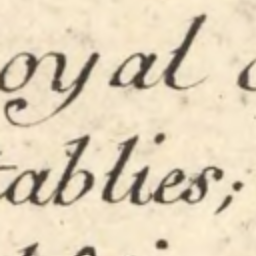 oyal
tablies;